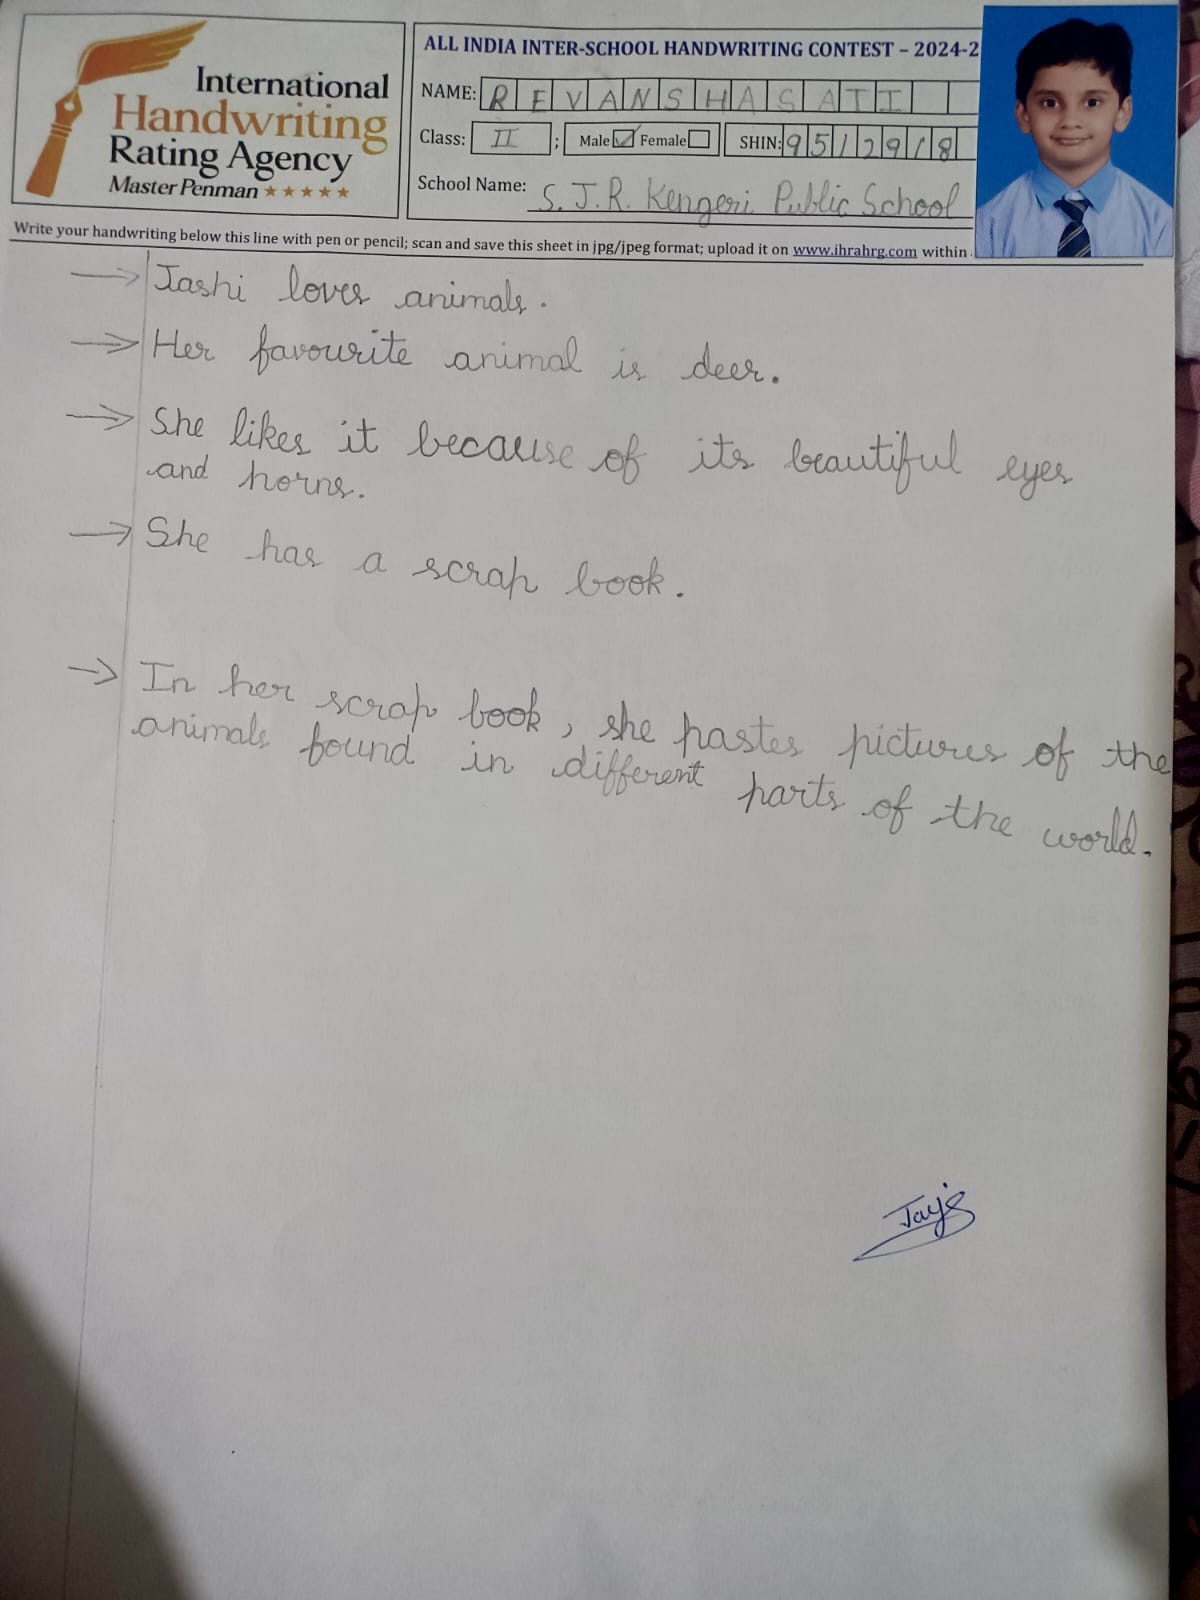 International
Handwriting
Rating Agency
Master Penman ★★★★★
ALL INDIA INTER-SCHOOL HANDWRITING CONTEST – 2024-2
NAME: REVANSHASATI
Class: II ; Male ✓ Female SHIN: 95129181
School Name: S. J. R. Kengeri Public School
Write your handwriting below this line with pen or pencil; scan and save this sheet in jpg/jpeg format; upload it on www.ihrahrg.com within
→ Tashi loves animals.
→ Her favourite animal is deer.
→ She likes it because of its beautiful eyes
and horns.
→ She has a scrap book.
→ In her scrap book, she pastes pictures of the
animals found in different parts of the world.